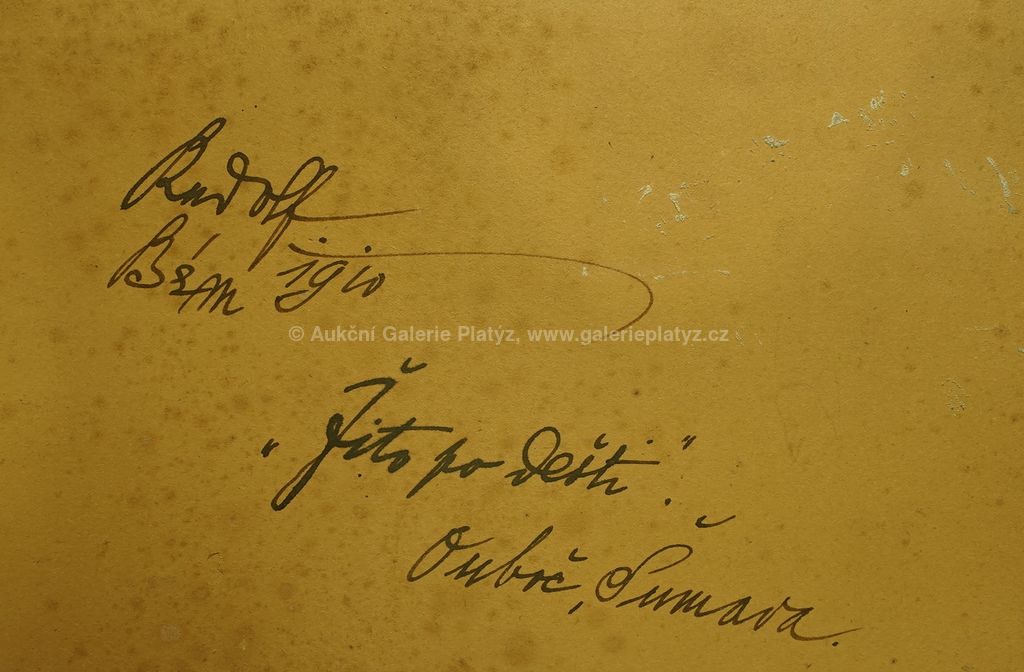 Rudolf
Bém 1910
© Aukční Galerie Platýz, www.galerieplatyz.cz
„Žito po dešti".
Ouboč, Šumava.